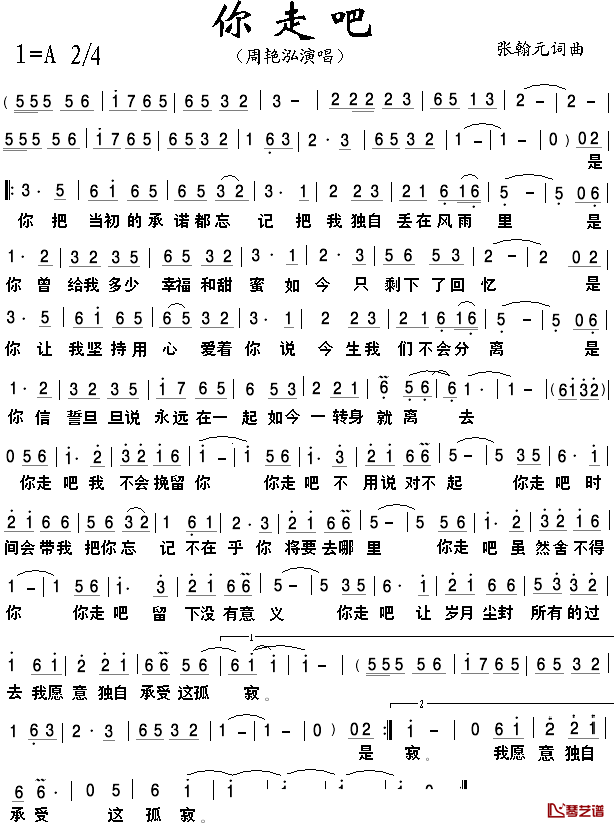 你走吧
1=A 2/4 （周艳泓演唱） 张翰元词曲
( 555 56 | i765 | 6532 | 3 - | 2222 23 | 6513 | 2 - |
555 56 | i765 | 6532 | 1 63 | 2· 3 | 6532 | 1 - | 1 - | 10 ) 02 |
是
‖: 3· 5 | 6i65 | 6532 | 3· 1 | 2· 23 | 21616 | 5 - | 5 06 |
你 把 当初的承诺都忘 记 把 我 独自 丢在风雨 里 是
1· 2 | 3235 | 6532 | 3· 1 | 2· 3 | 56 53 | 2 - | 2 02 |
你 曾 给我多少 幸福和甜 蜜 如 今 只 剩下了回忆 是
3· 5 | 6i65 | 6532 | 3· 1 | 2 23 | 21616 | 5 - | 5 06 |
你 让 我坚持用 心 爱着你 说 今 生我 们不会分 离 是
1· 2 | 3235 | i765 | 6 53 | 2 2 1 | 6 56 | 6 1· | 1 - | (6i32)|
你 信 誓旦旦说 永远在一 起 如今 一转身 就 离 去
056 | i· 2 | 3232 | 216 | i - | i 56 | i· 3 | 2i66 | 5 - | 5 56 |
你走吧我 不会挽留你 你走吧 不 用说对不起 你走吧时
2i66 | 5632 | 1 61 | 2· 3 | 2i66 | 5 - | 5 56 | i· 2 | 3 216 |
间会带我 把你忘 记 不在乎 你 将要去哪里 你走吧虽 然舍不得
i - | i 56 | i· 3 | 2i66 | 5 - | 5 56 | i· 2 | 3 2i | 6 56 |
你 你走吧 留 下没有意 义 你走吧 让 岁月 尘封 所有的过
1
i 6i | 2 22i | 66 56 | 6i i | i - | (555 56 | i765 | 6532 |
去 我愿 意 独自 承受 这孤 寂。
2
1 63 | 2· 3 | 6532 | 1 - | 10 ) 02 :‖ i - | 0 6i | 2 22i |
是 寂。 我愿 意 独自
6 6· | 05 | 6 i | i - | i - | i - | i 0 ‖
承受 这 孤 寂。
琴艺谱